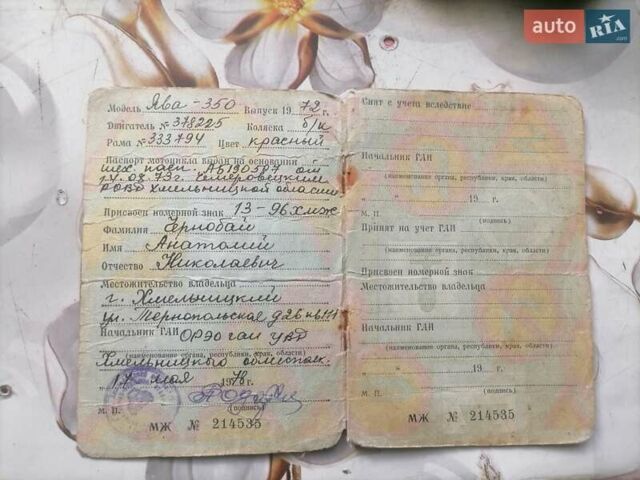 auto RIA.com
Модель Ява-350 Выпуск 1972 г.
Двигатель № 378225 Коляска б/к
Рама № 333794 Цвет красный
Паспорт мотоцикла выдан на основании
тех. пасп. АБ190587 от
14.08.73г. Чемеровецким
РОВД Хмельницкой области
Присвоен номерной знак 13-96 хмж
Фамилия Чернобай
Имя Анатолий
Отчество Николаевич
Местожительство владельца
г. Хмельницкий
ул. Тернопольская д 26 кв 111
Начальник ГАИ ОРЭО ГАИ УВД
(наименование органа, республики, края, области)
Хмельницкого облисполк.
17 мая 1979 г.
М. П. (подпись)
МЖ № 214535
Снят с учета вследствие
Начальник ГАИ
(наименование органа, республики, края, области)
19 г.
М. П. (подпись)
Принят на учет ГАИ
(наименование органа, республики, края, области)
Присвоен номерной знак
Местожительство владельца
Начальник ГАИ
(наименование органа, республики, края, области)
19 г.
М. П. (подпись)
МЖ № 214535